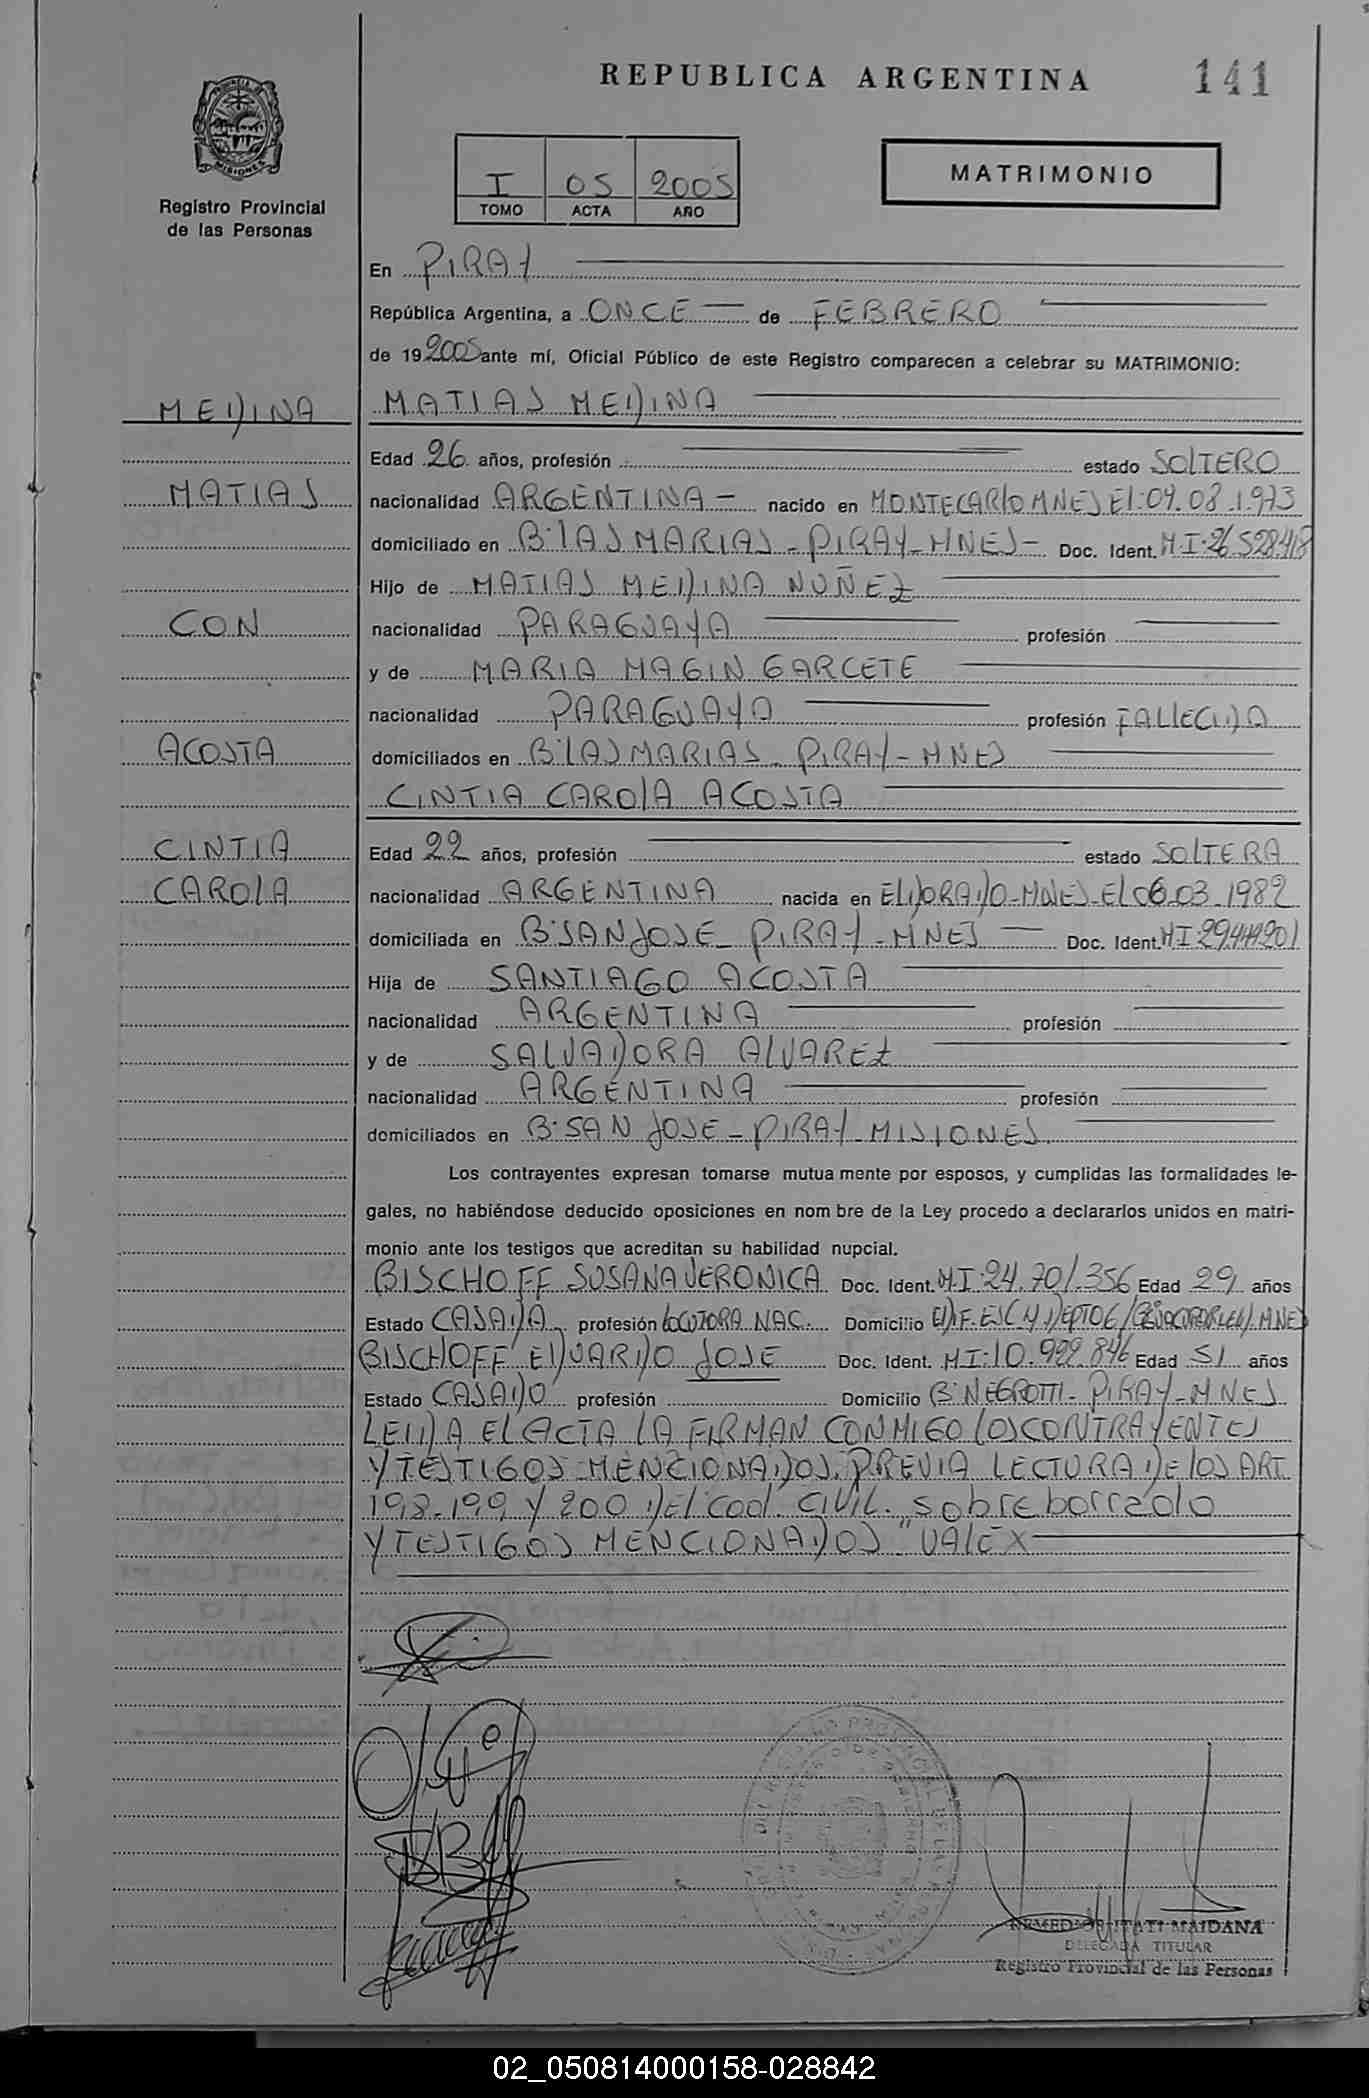 REPUBLICA ARGENTINA
141
PROVINCIA DE
MISIONES
Registro Provincial
de las Personas
I 05 2005
TOMO ACTA AÑO
MATRIMONIO
En PIRAY
República Argentina, a ONCE de FEBRERO
de 19 2005 ante mí, Oficial Público de este Registro comparecen a celebrar su MATRIMONIO:
MEDINA
MATIAS MEDINA
Edad 26 años, profesión estado SOLTERO
MATIAS
nacionalidad ARGENTINA - nacido en MONTECARLO MNES El: 09.08.1973
domiciliado en B: LAS MARIAS - PIRAY - MNES - Doc. Ident. M I: 26.528.418
Hijo de MATIAS MEDINA NUÑEZ
CON
nacionalidad PARAGUAYA profesión
y de MARIA MAGIN GARCETE
nacionalidad PARAGUAYA profesión FALLECIDA
ACOSTA
domiciliados en B: LAS MARIAS - PIRAY - MNES
CINTIA CAROLA ACOSTA
CINTIA
Edad 22 años, profesión estado SOLTERA
CAROLA
nacionalidad ARGENTINA nacida en ELDORADO - MNES - El 06.03.1982
domiciliada en B: SAN JOSE - PIRAY - MNES Doc. Ident. M I 29.449.201
Hija de SANTIAGO ACOSTA
nacionalidad ARGENTINA profesión
y de SALVADORA ALVAREZ
nacionalidad ARGENTINA profesión
domiciliados en B: SAN JOSE - PIRAY - MISIONES
Los contrayentes expresan tomarse mutua mente por esposos, y cumplidas las formalidades le-
gales, no habiéndose deducido oposiciones en nom bre de la Ley procedo a declararlos unidos en matri-
monio ante los testigos que acreditan su habilidad nupcial.
BISCHOFF SUSANA VERONICA Doc. Ident. M I: 24.701.356 Edad 29 años
Estado CASADA profesión LOCUTORA NAC. Domicilio EDIF. ESC 4 DEPTO 6 MNES
BISCHOFF EDUARDO JOSE Doc. Ident. M I: 10.992.846 Edad 51 años
Estado CASADO profesión Domicilio B: NEGROTTI - PIRAY - MNES
LEIDA EL ACTA LA FIRMAN CONMIGO LOS CONTRAYENTES
Y TESTIGOS MENCIONADOS. PREVIA LECTURA DE LOS ART.
198-199 Y 200 DEL COD. CIVIL. Sobre borrado
Y TESTIGOS MENCIONADOS "VALEX
ITATI MAIDANA
DELEGADA TITULAR
Registro Provincial de las Personas
02_050814000158-028842